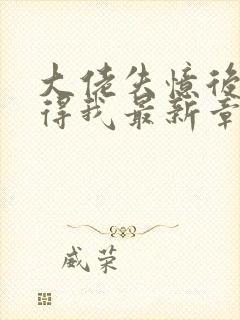 大佬失憶後
得我最新章
威荣